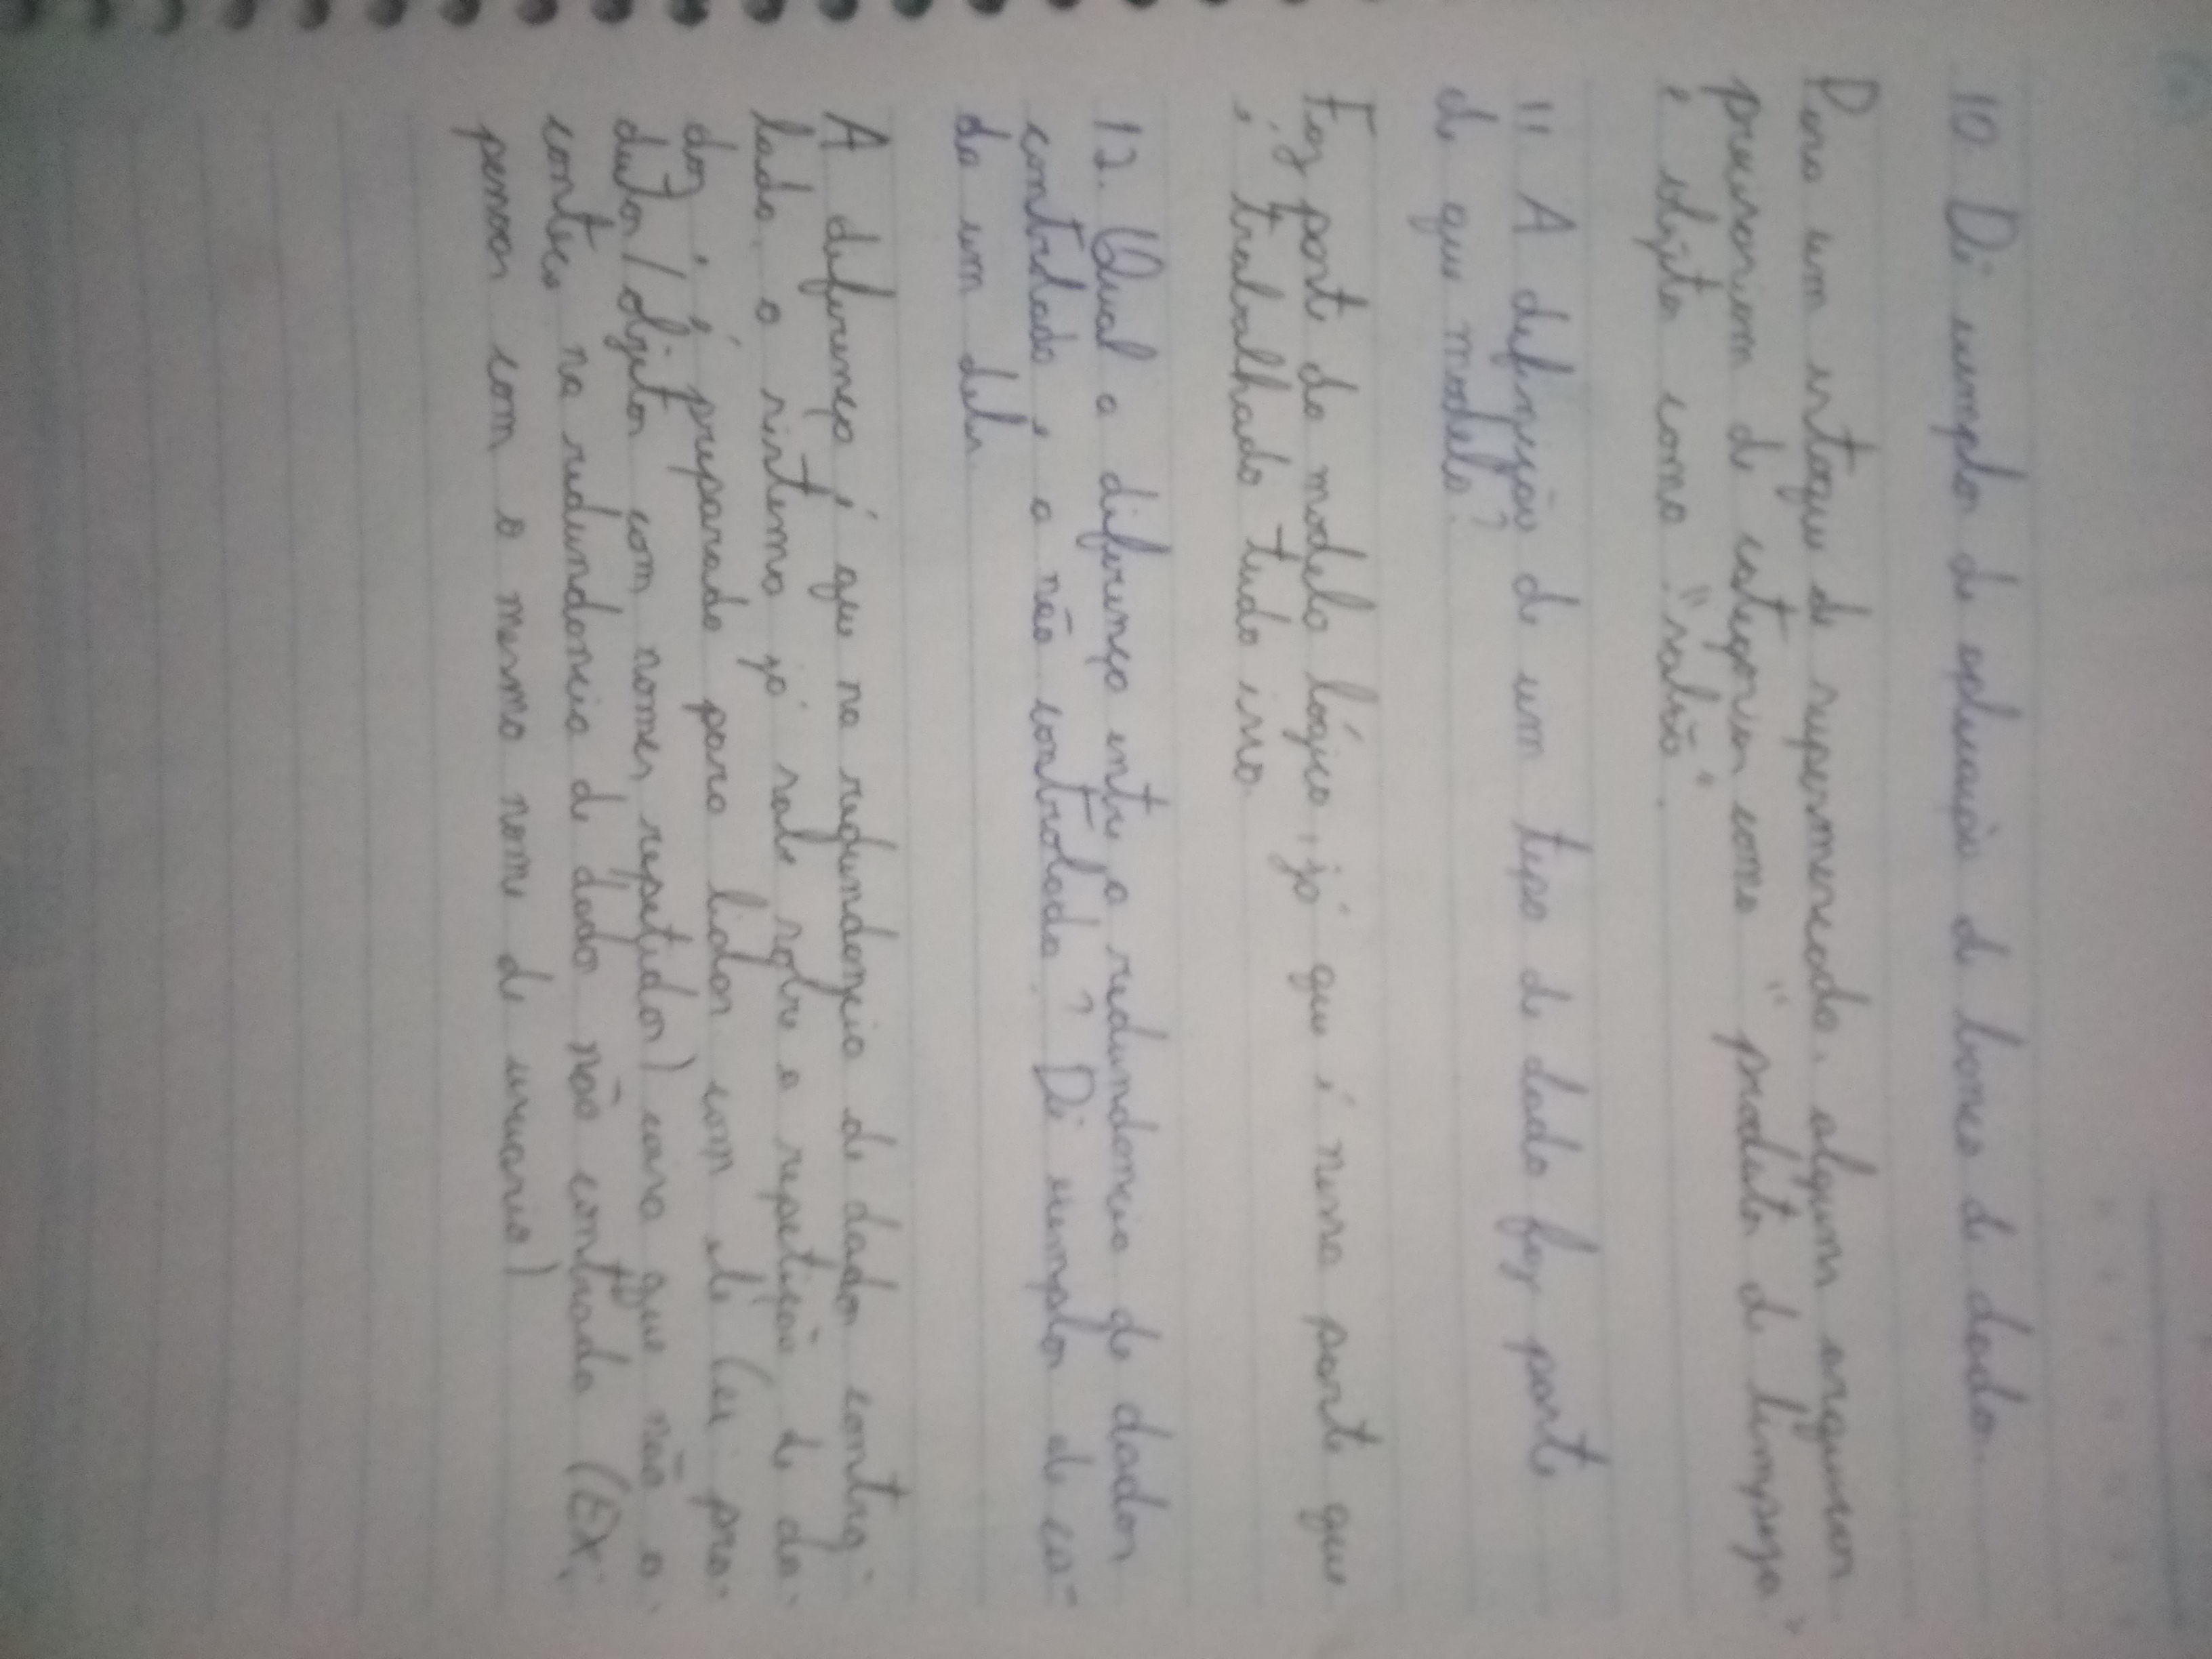 10. Dê exemplos de aplicação de banco de dado.
Para um estoque de supermercado, alguns arquivos
precisariam de categorias como "produtos de limpeza"
e objetos como "sabão".
11. A definição de um tipo de dado faz parte
de que modelo?
Faz parte do modelo lógico, já que é nessa parte que
é trabalhado tudo isso
12. Qual a diferença entre a redundancia de dados
controlado e a não controlada? Dê exemplos de ca-
da um deles.
A diferença é que na redundancia de dados contro-
lado, o sistema já sabe sobre a repetição de da-
dos e é preparado para lidar com ele (ex: pro-
dutos/objetos com nomes repetidos) caso que não a-
contece na redundancia de dados não controlada (EX:
pessoas com o mesmo nome de usuario)